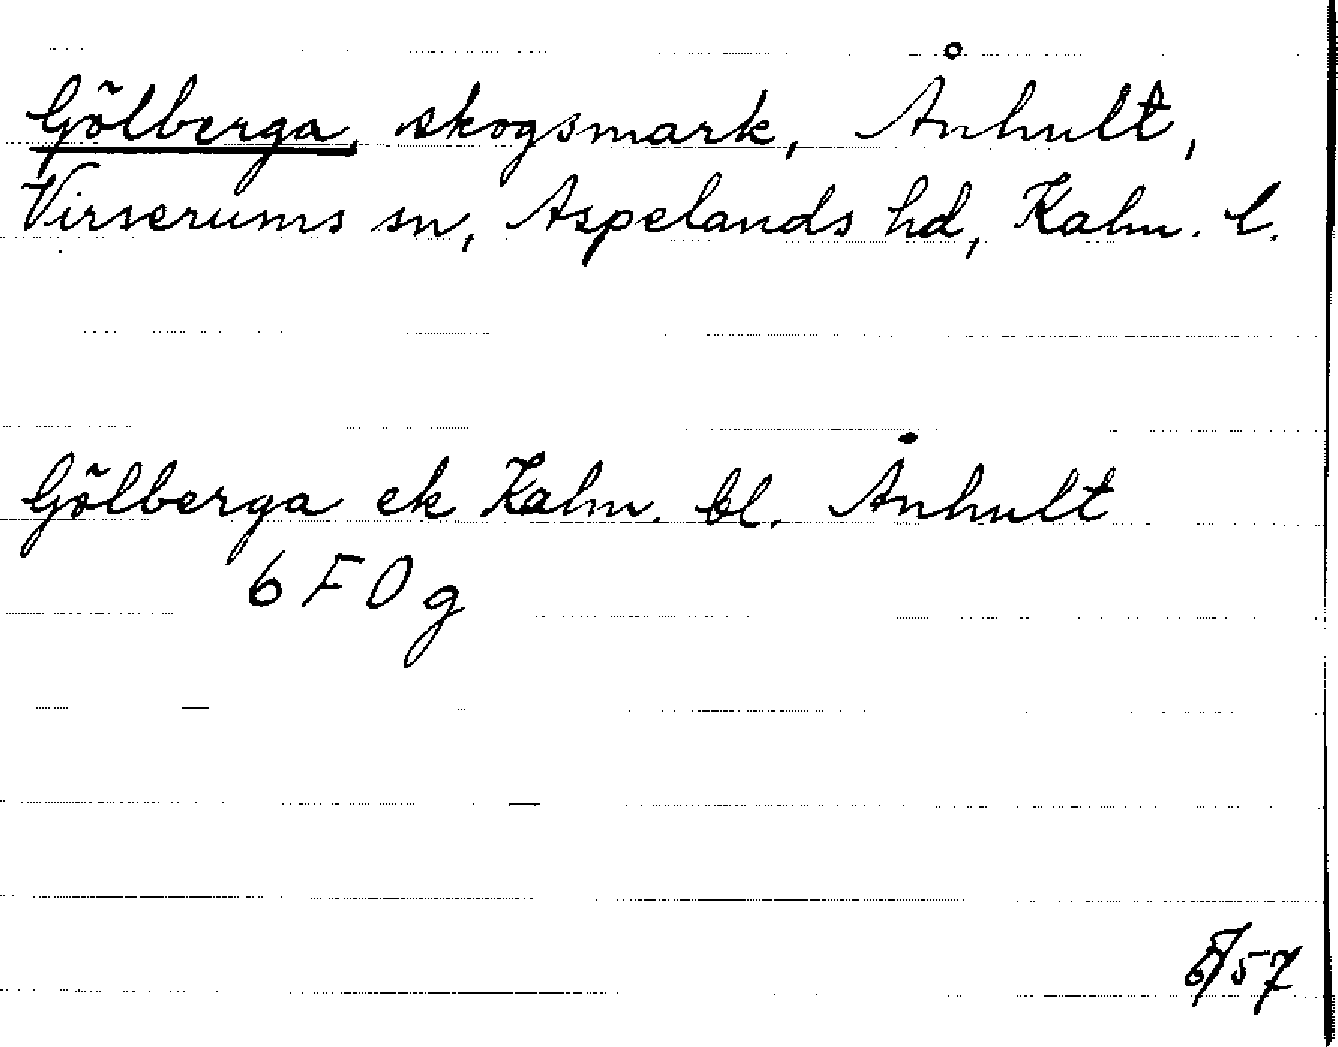 Gölberga, skogsmark, Ånhult,
Virserums sn, Aspelands hd, Kalm. l.
Gölberga ek Kalm. bl. Ånhult
6 F 0 g
57